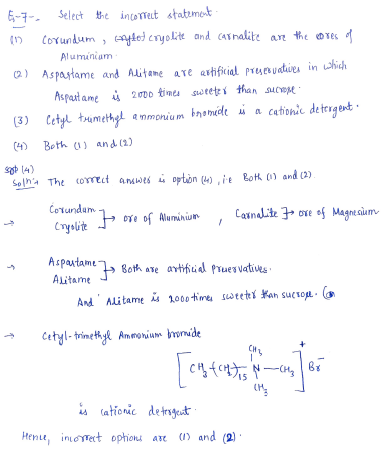 E-7-. Select the incorrect statement.
(1) Corundum, cryolite and carnalite are the ores of
Aluminium.
(2) Aspartame and Alitame are artificial preservatives in which
Aspartame is 2000 times sweeter than sucrose.
(3) Cetyl trimethyl ammonium bromide is a cationic detergent.
(4) Both (1) and (2)
sol (4)
Soln:→ The correct answer is option (4), i.e Both (1) and (2).
→ Corundum
Cryolite ]→ ore of Aluminium , Carnalite ]→ ore of Magnesium
→ Aspartame
Alitame ]→ Both are artificial preservatives.
And Alitame is 2000 times sweeter than sucrose.
→ Cetyl-trimethyl Ammonium bromide
[CH3-(CH2)15-N-CH3]+ Br-
CH3
CH3
is cationic detergent.
Hence, incorrect options are (1) and (2).